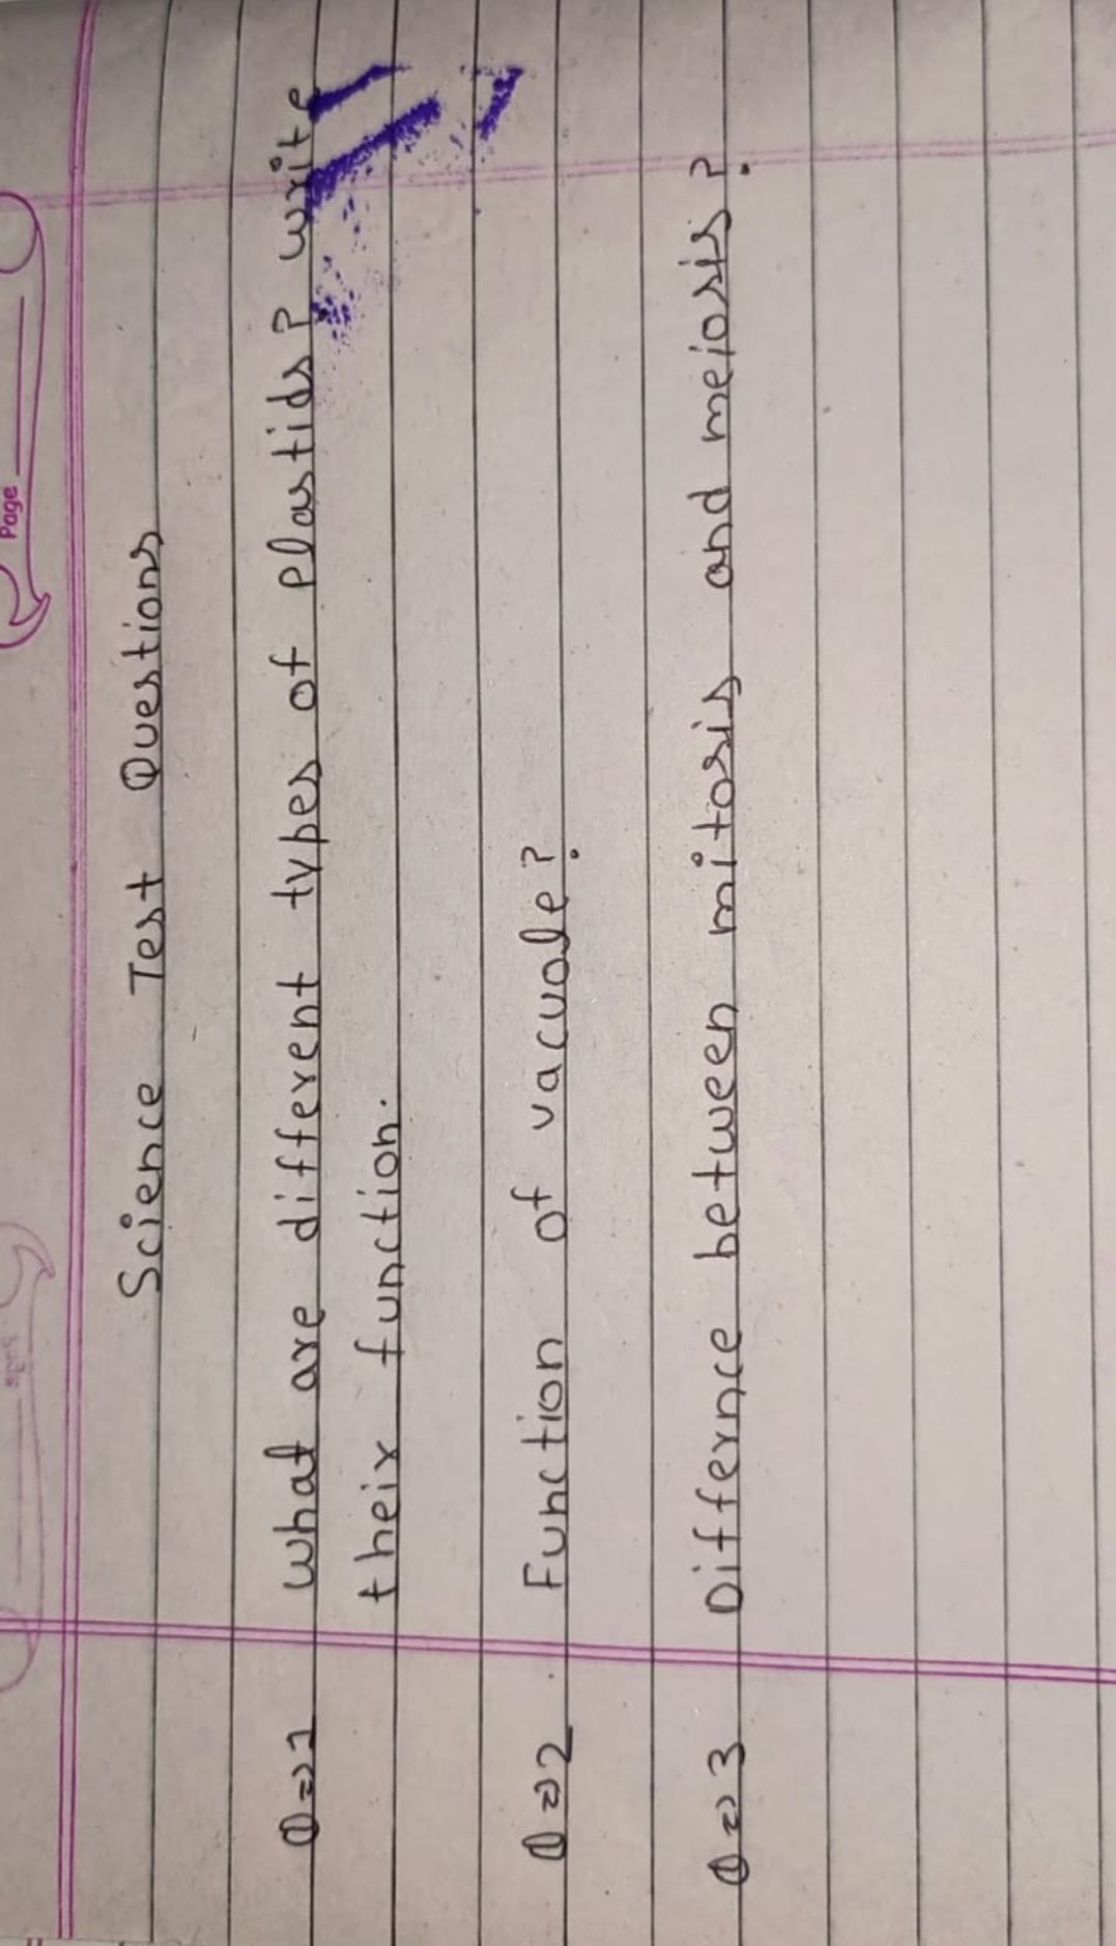 Page
Science Test Questions
Q=>1 what are different types of plastids? write
their function.
Q=>2 Function of vacuole?
Q=>3 Differnce between mitosis and meiosis?